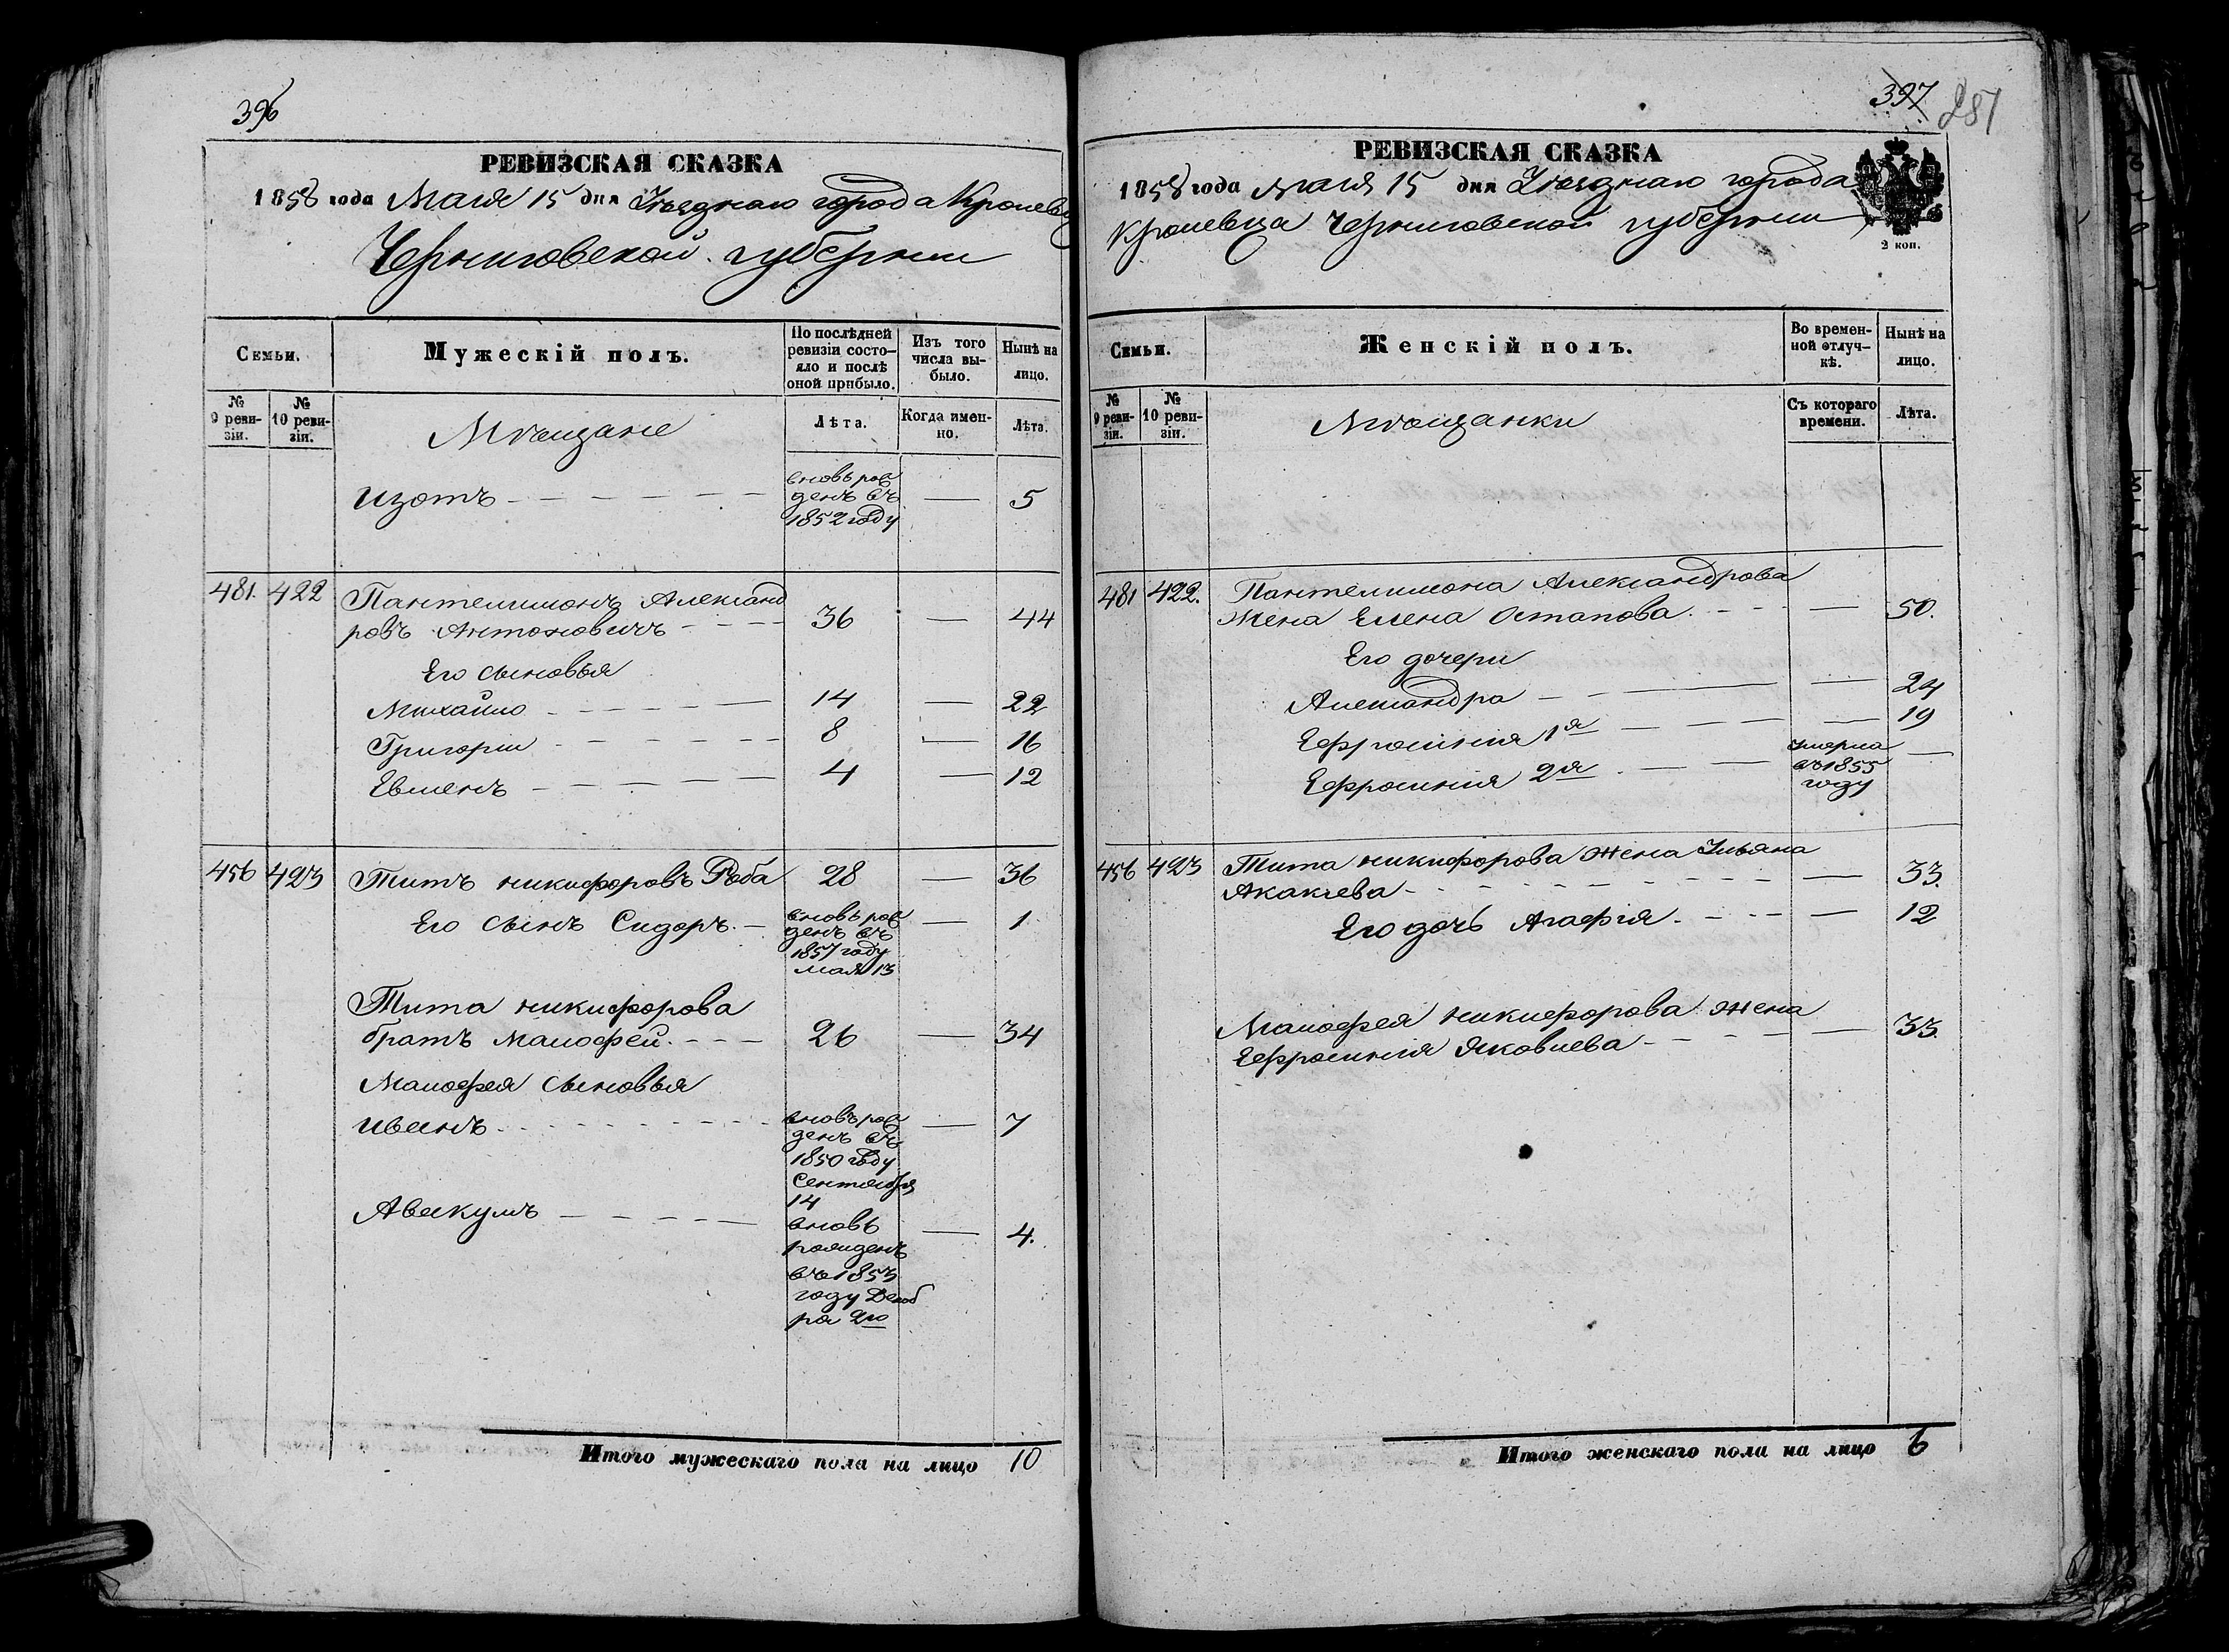 396
РЕВИЗСКАЯ СКАЗКА
1858 года Маія 15 дня Уѣзднаго города Кролевца
Черниговской губерніи
Семьи.
Мужескій полъ.
По послѣдней ревизіи состо-
яло и послѣ оной прибыло.
Изъ того числа вы-
было.
Нынѣ на лицо.
№ 9 реви-
зіи.
№ 10 реви-
зіи.
Мѣщане
Лѣта.
Когда имен-
но.
Лѣта.
Изотъ - - - - - -
вновь рож
денъ въ
1852 году
—
5
481. 422
Пантелимонъ Александ
ровъ Антоновичъ - - - - 36 — 44
Его сыновья
Михайло - - - - - - 14 — 22
Григорій - - - - - - 8 — 16
Евменъ - - - - - 4 — 12
456 423 Титъ Никифоровъ Роба 28 — 36
Его сынъ Сидоръ. -
вновь рож
денъ въ
1857 году
мая 13
—
1
Тита Никифорова
братъ Малофей. - - - 26 — 34
Малофея сыновья
Иванъ - - - - - - - - -
вновь рож
денъ въ
1850 году
Сентября
14
—
7
Авакумъ - - - - - -
вновь
рожденъ
въ 1853
году Декаб
ря 2го
—
4.
Итого мужескаго пола на лицо 10
397
287
РЕВИЗСКАЯ СКАЗКА
1858 года Маія 15 дня Уѣзднаго города
Кролевца Черниговской губерніи
2 коп.
Семьи.
Женскій полъ.
Во времен-
ной отлуч-
кѣ.
Нынѣ на лицо.
№ 9 реви-
зіи.
№ 10 реви-
зіи.
Мѣщанки
Съ котораго времени.
Лѣта.
481 422.
Пантелимона Александрова
жена Елена Остапова. - - - — 50.
Его дочери
Александра - - - — 24
Ефросинія 1я - - - — 19
Ефросинія 2я - - -
умерла
въ 1855
году
—
456 423 Тита Никифорова жена Ульяна
Акакіева - - - - - - - — 33.
Его дочь Агафія. - - - — 12
Малофея Никифорова жена
Ефросинія Яковлева - - - - — 33.
Итого женскаго пола на лицо 6